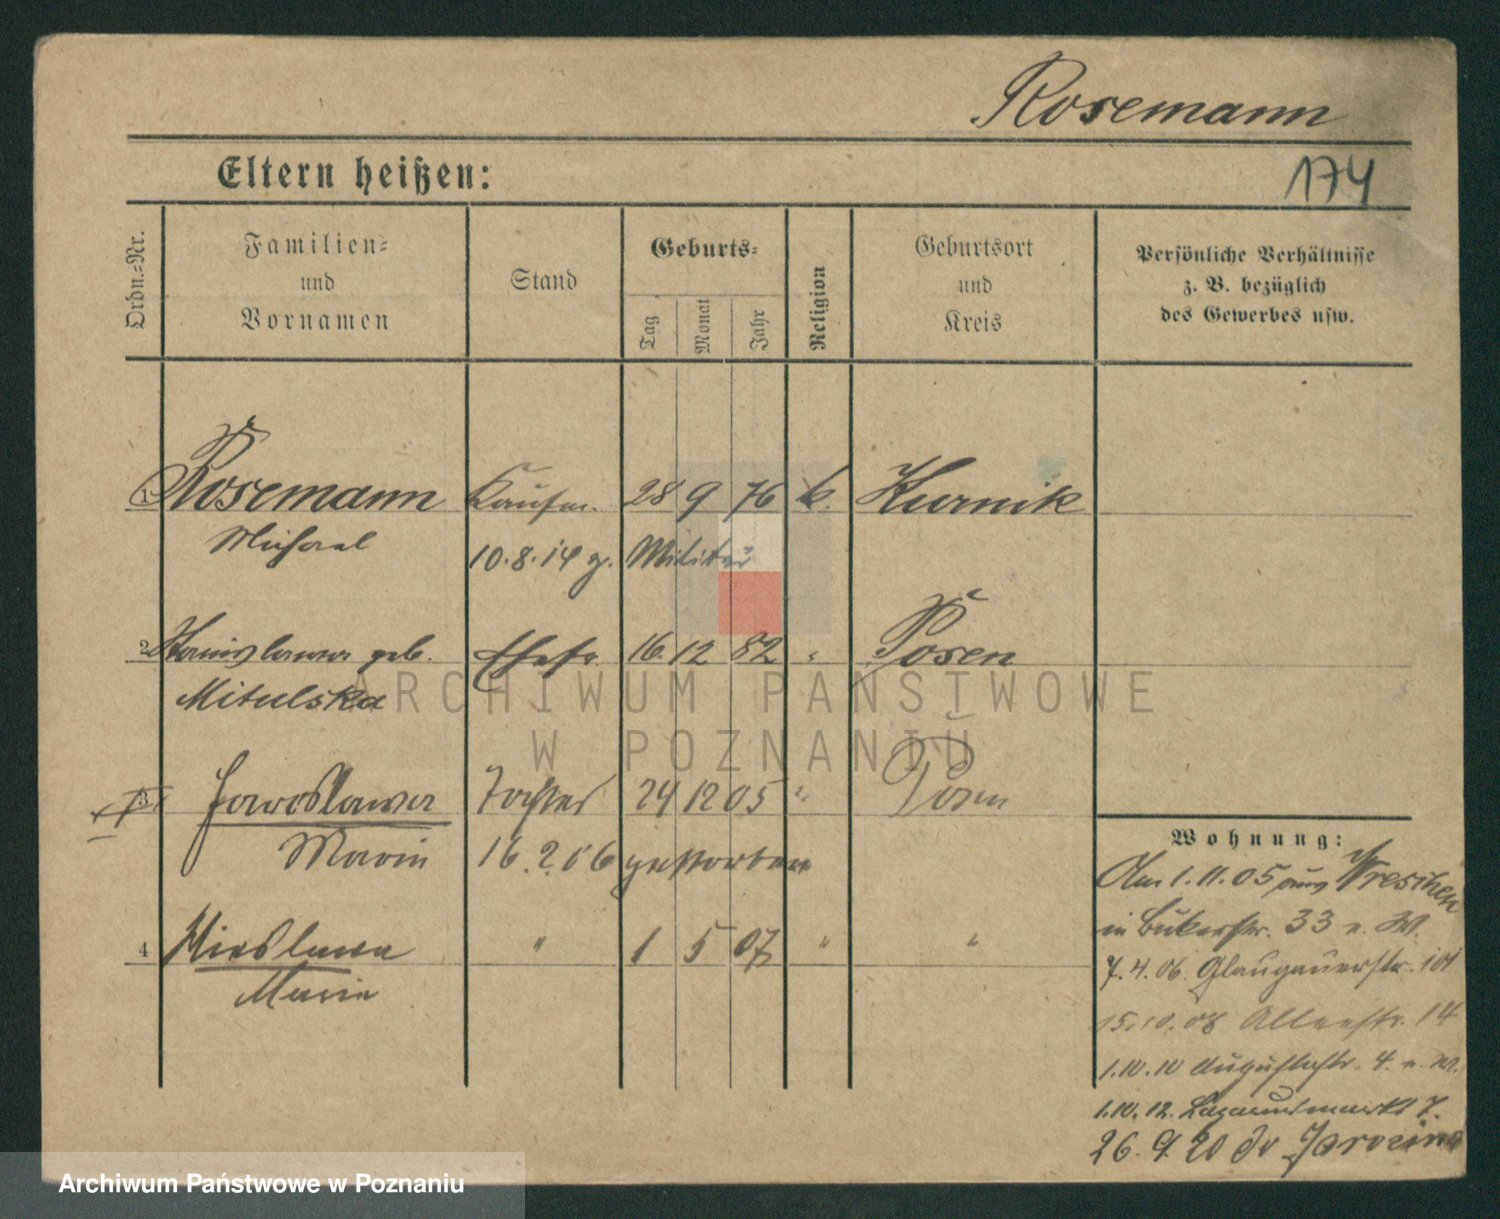 Rosemann
174
Eltern heißen:
Ordn.-Nr.
Familien-
und
Vornamen
Stand
Geburts-
Tag
Monat
Jahr
Religion
Geburtsort
und
Kreis
Persönliche Verhältnisse
z. B. bezüglich
des Gewerbes usw.
1 Rosemann Kaufm. 28 9 76 k. Kurnik
Michael 10.8.14 z. Militär
2 Stanislawa geb. Ehefr. 16. 12 82 " Posen
Mitulska
3 Jaroslawa Tochter 24 12 05 " Posen
Marie 16.2.06 gestorben
4 Miroslawa " 1 5 07 " "
Marie
Wohnung:
Am 1.11.05 aus Wreschen
in Bukerstr. 33 e. W.
7.4.06 Glaugauerstr. 101
15.10.08 Alleestr. 14
1.10.10 Augustastr. 4. e. W.
1.10.12. 7.
26.9 20 Jarocin
ARCHIWUM PAŃSTWOWE
W POZNANIU
Archiwum Państwowe w Poznaniu